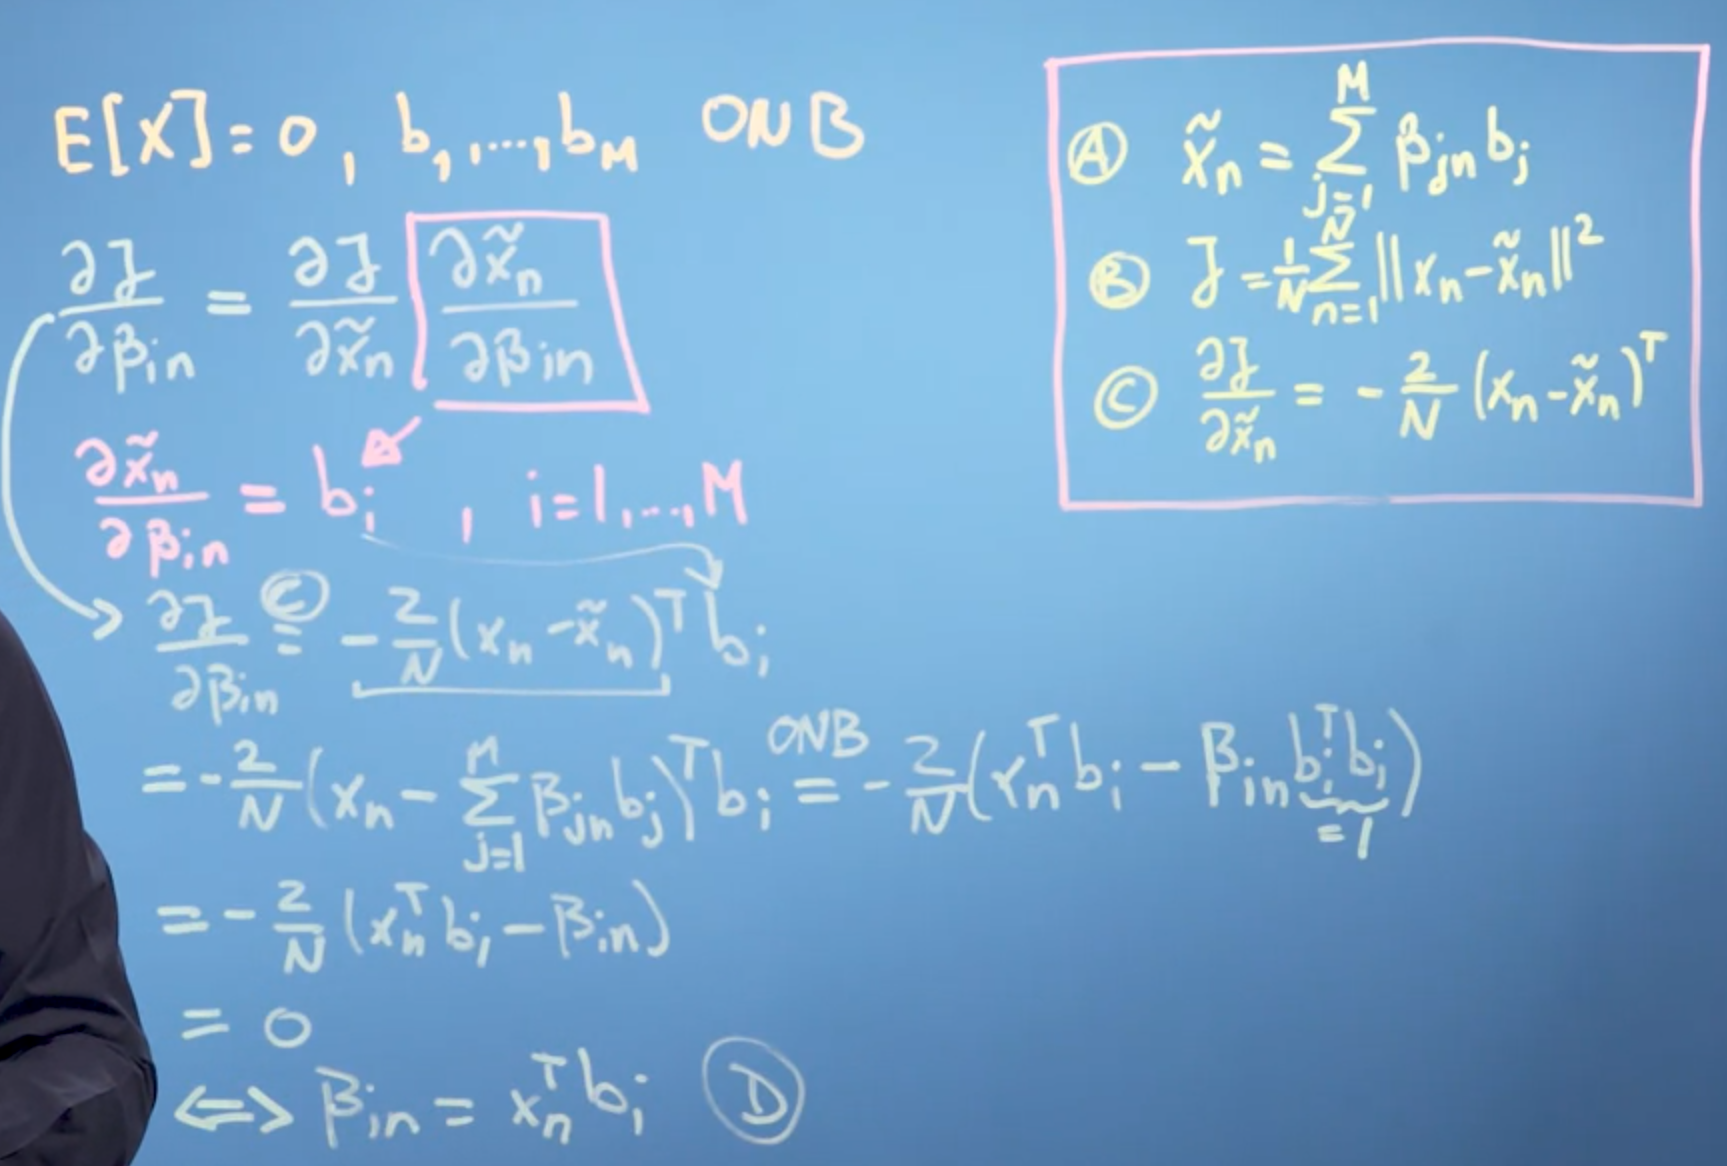 E[X]=0, b₁,...,b_M ONB
∂J/∂β_in = ∂J/∂x̃_n ∂x̃_n/∂β_in
∂x̃_n/∂β_in = b_i , i=1,...,M
∂J/∂β_in Ⓒ= -2/N (x_n - x̃_n)^T b_i
= -2/N (x_n - Σ_{j=1}^{M} β_jn b_j)^T b_i ONB= -2/N (x_n^T b_i - β_in b_i^T b_i)
=1
= -2/N (x_n^T b_i - β_in)
= 0
⟺ β_in = x_n^T b_i Ⓓ
Ⓐ x̃_n = Σ_{j=1}^{M} β_jn b_j
Ⓑ J = 1/N Σ_{n=1}^{N} ||x_n - x̃_n||²
Ⓒ ∂J/∂x̃_n = - 2/N (x_n - x̃_n)^T